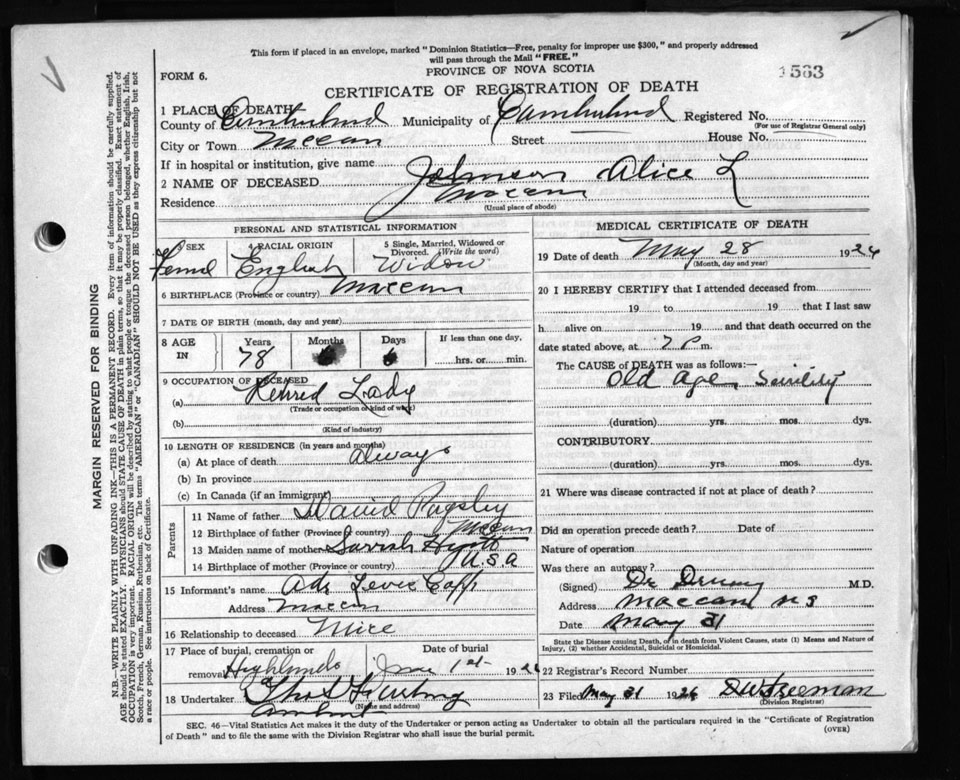 This form if placed in an envelope, marked "Dominion Statistics—Free, penalty for improper use $300," and properly addressed
will pass through the Mail "FREE."
1563
FORM 6.
PROVINCE OF NOVA SCOTIA
CERTIFICATE OF REGISTRATION OF DEATH
1 PLACE OF DEATH
County of Cumberland Municipality of Cumberland Registered No.
(For use of Registrar General only)
City or Town Maccan Street House No.
If in hospital or institution, give name
2 NAME OF DECEASED Johnson Alice L
Residence Maccan
(Usual place of abode)
PERSONAL AND STATISTICAL INFORMATION
3 SEX 4 RACIAL ORIGIN 5 Single, Married, Widowed or
Divorced. (Write the word)
Femal English Widow
6 BIRTHPLACE (Province or country) Maccan
7 DATE OF BIRTH (month, day and year)
8 AGE Years Months Days If less than one day,
IN 78 6 hrs. or min.
9 OCCUPATION OF DECEASED
(a) Retired Lady
(Trade or occupation or kind of work)
(b)
(Kind of industry)
10 LENGTH OF RESIDENCE (in years and months)
(a) At place of death always
(b) In province
(c) In Canada (if an immigrant)
Parents
11 Name of father David Pugsley
12 Birthplace of father (Province or country) Maccan
13 Maiden name of mother Sarrah
14 Birthplace of mother (Province or country) U.S.A
15 Informant's name
Address Maccan
16 Relationship to deceased
17 Place of burial, cremation or Date of burial
removal Highlands June 1st 1926
18 Undertaker Thos
(Name and address)
Amherst
MEDICAL CERTIFICATE OF DEATH
19 Date of death May 28 1926
(Month, day and year)
20 I HEREBY CERTIFY that I attended deceased from
19 to 19 that I last saw
h alive on 19 and that death occurred on the
date stated above, at 7 P m.
The CAUSE OF DEATH was as follows:—
Old age, Senility
(duration) yrs. mos. dys.
CONTRIBUTORY
(duration) yrs. mos. dys.
21 Where was disease contracted if not at place of death?
Did an operation precede death? Date of
Nature of operation
Was there an autopsy?
(Signed) Dr M.D.
Address Maccan NS
Date May 31
State the Disease causing Death, or in death from Violent Causes, state (1) Means and Nature of
Injury, (2) whether Accidental, Suicidal or Homicidal.
22 Registrar's Record Number
23 Filed May 31 1926 D W Freeman
(Division Registrar)
SEC. 46—Vital Statistics Act makes it the duty of the Undertaker or person acting as Undertaker to obtain all the particulars required in the "Certificate of Registration
of Death" and to file the same with the Division Registrar who shall issue the burial permit.
(OVER)
MARGIN RESERVED FOR BINDING
N.B.—WRITE PLAINLY WITH UNFADING INK—THIS IS A PERMANENT RECORD. Every item of information should be carefully supplied.
AGE should be stated EXACTLY. PHYSICIANS should STATE CAUSE OF DEATH in plain terms, so that it may be properly classified. Exact statement of
OCCUPATION is very important. RACIAL ORIGIN will be described by stating to what people or tongue the deceased person belonged, whether English, Irish,
Scotch, French, German, Russian, Ruthenian, etc. The terms "AMERICAN" or "CANADIAN" SHOULD NOT BE USED as they express citizenship but not
a race or people. See instructions on back of Certificate.